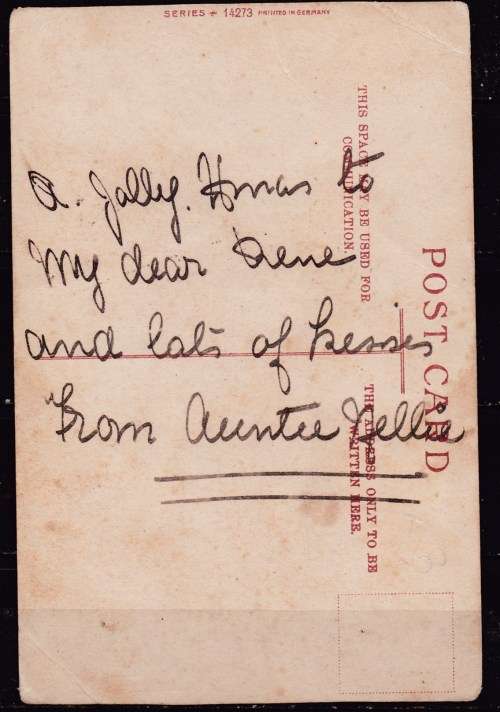 SERIES 14273 PRINTED IN GERMANY
THIS SPACE MAY BE USED FOR
COMMUNICATION.
POST CARD
THE ADDRESS ONLY TO BE
WRITTEN HERE.
A. Jolly. Xmas to
My dear Irene
and lots of kisses
From Auntee Nellie